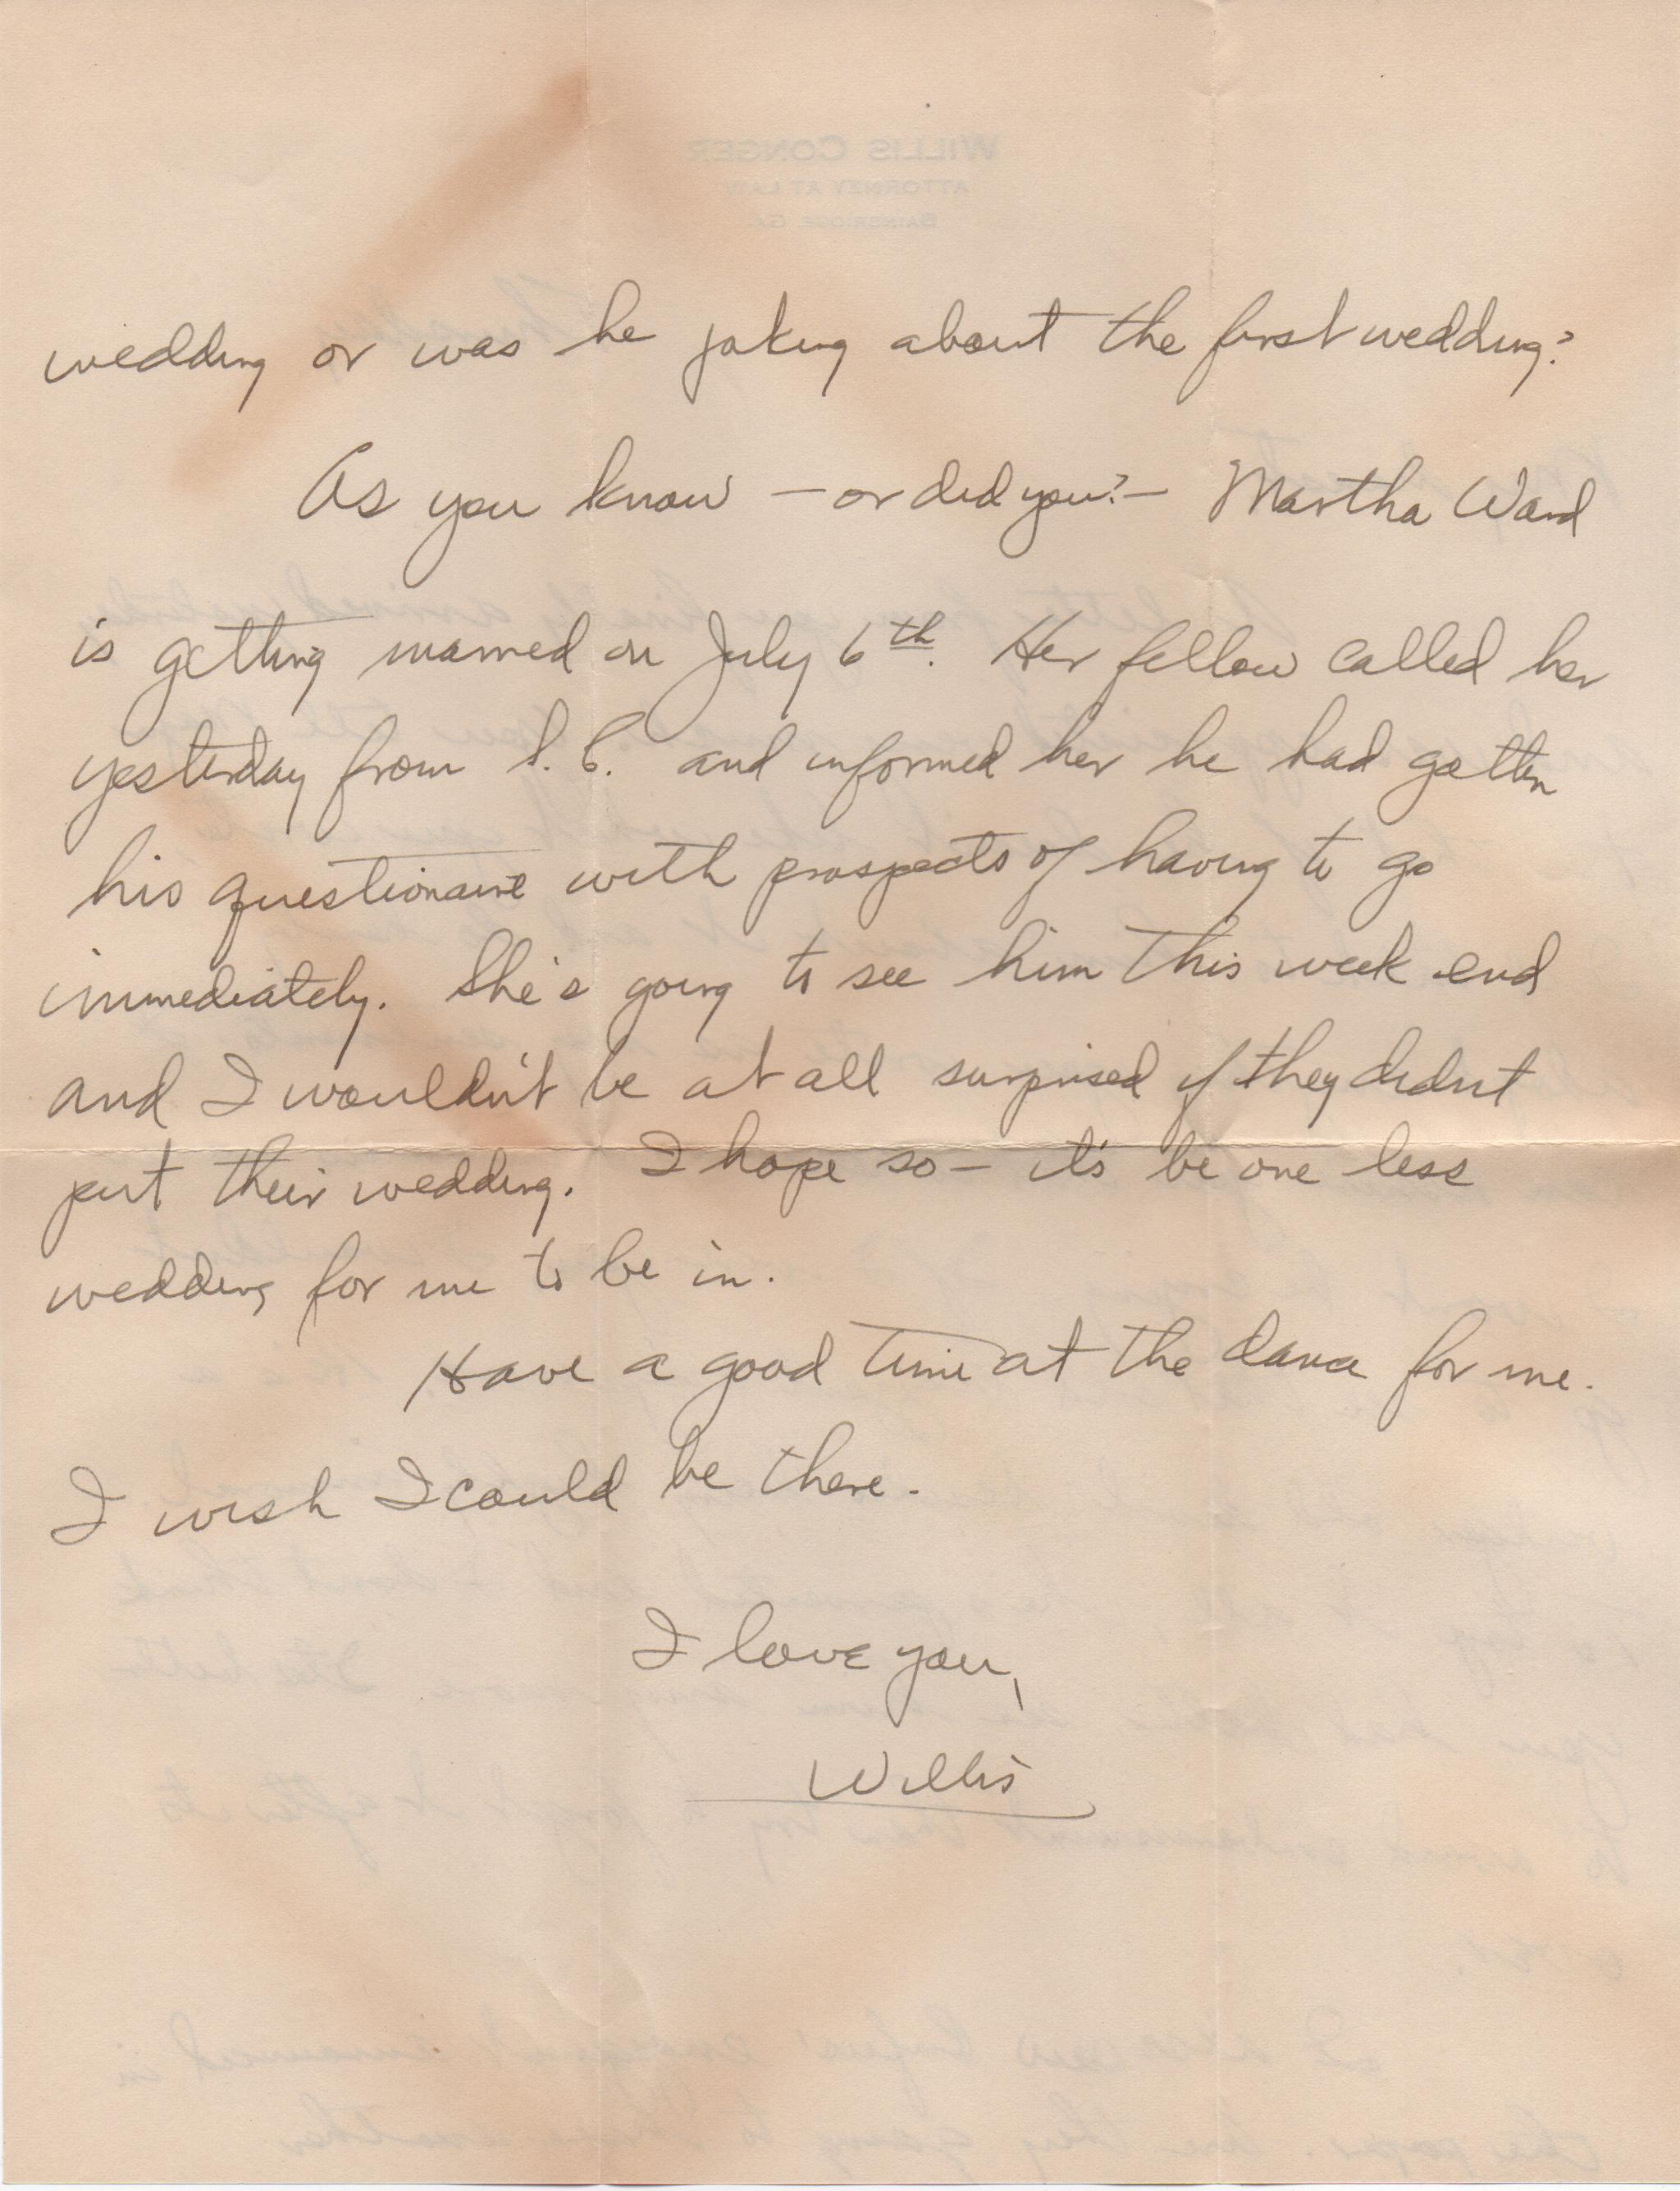 WILLIS CONGER
ATTORNEY AT LAW
BAINBRIDGE, GA.
wedding or was he joking about the first wedding?
As you know — or did you? — Martha Ward
is getting married on July 6th. Her fellow called her
yesterday from S. C. and informed her he had gotten
his questionaire with prospects of having to go
immediately. She's going to see him this week end
and I wouldn't be at all surprised if they didn't
put their wedding. I hope so — it's be one less
wedding for me to be in.
Have a good time at the dance for me.
I wish I could be there.
I love you,
Willis